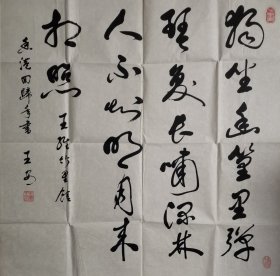 独坐幽篁里弹
琴复长啸深林
人不知明月来
相照
王维竹里馆